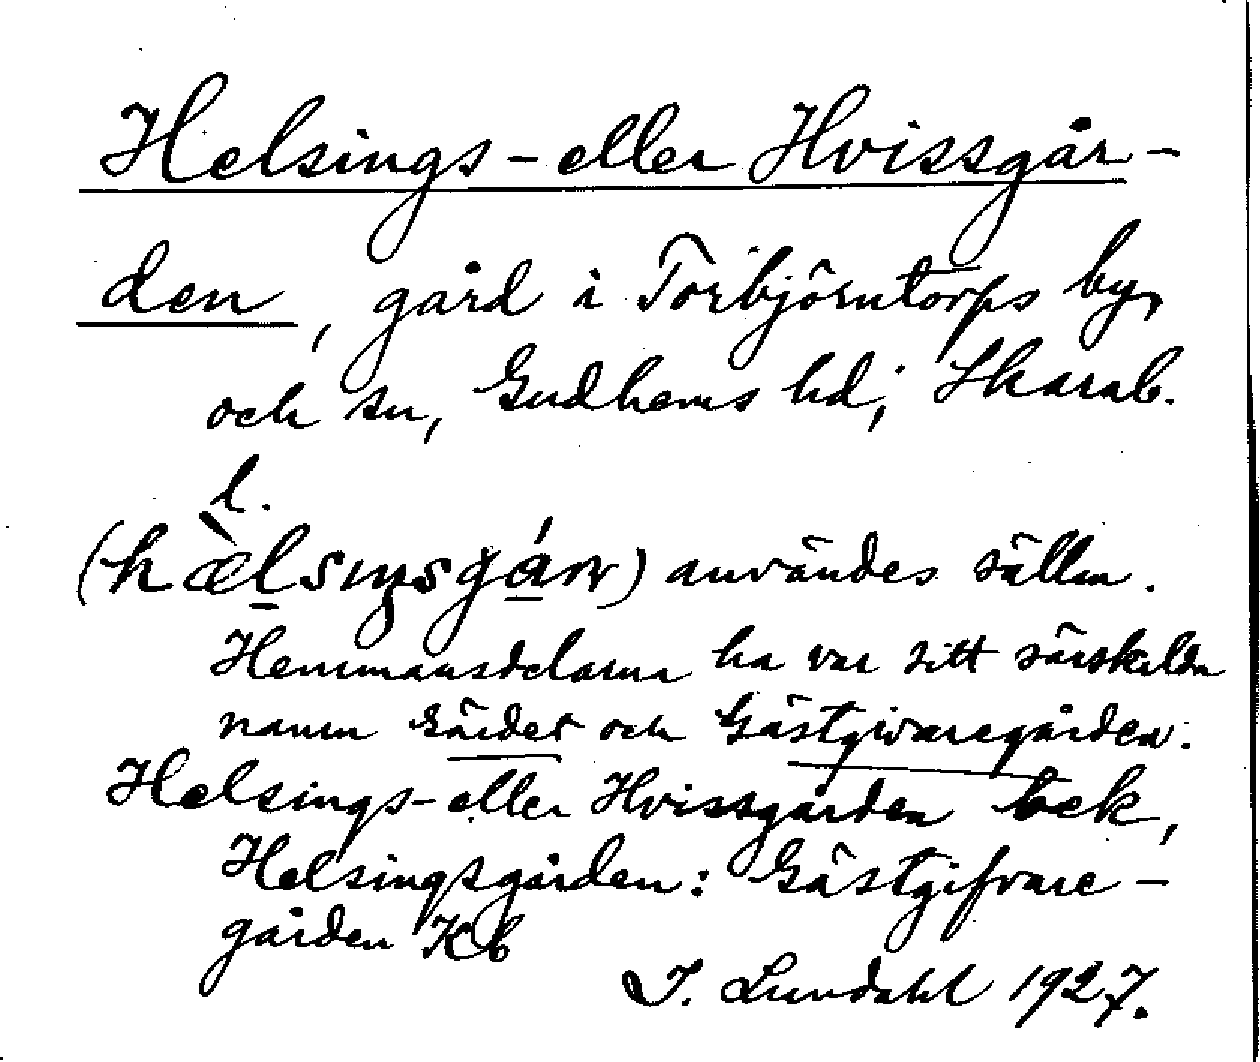 Helsings- eller Hvissgår-
den, gård i Torbjörntorps by,
och sn, Gudhems hd, Skarab.
l.
(hæ̀lsıŋsgá̠ṇ) användes sällan.
Hemmansdelarna ha var sitt särskilda
namn Gärdet och Gästgivaregården.
Helsings- eller Hvissgården Eek,
Helsingsgården: Gästgifvare-
gården Kb
I. Lundahl 1927.